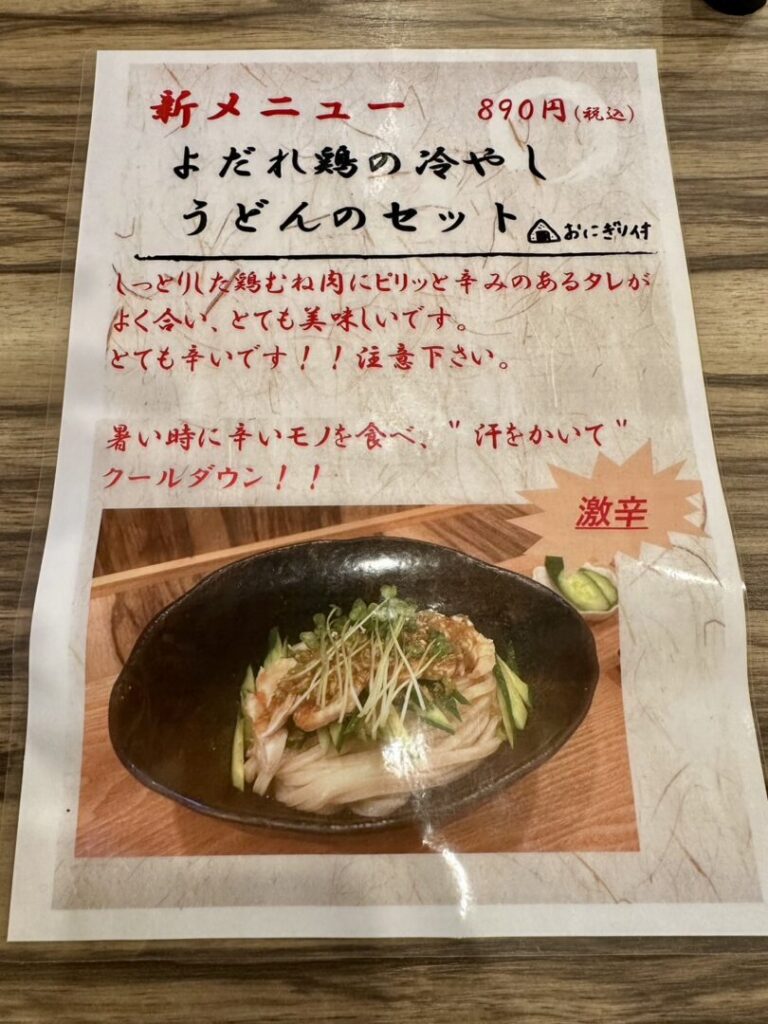 新メニュー 890円(税込)
よだれ鶏の冷やし
うどんのセット おにぎり付
しっとりした鶏むね肉にピリッと辛みのあるタレが
よく合い、とても美味しいです。
とても辛いです！！注意下さい。
暑い時に辛いモノを食べ、"汗をかいて"
クールダウン！！
激辛